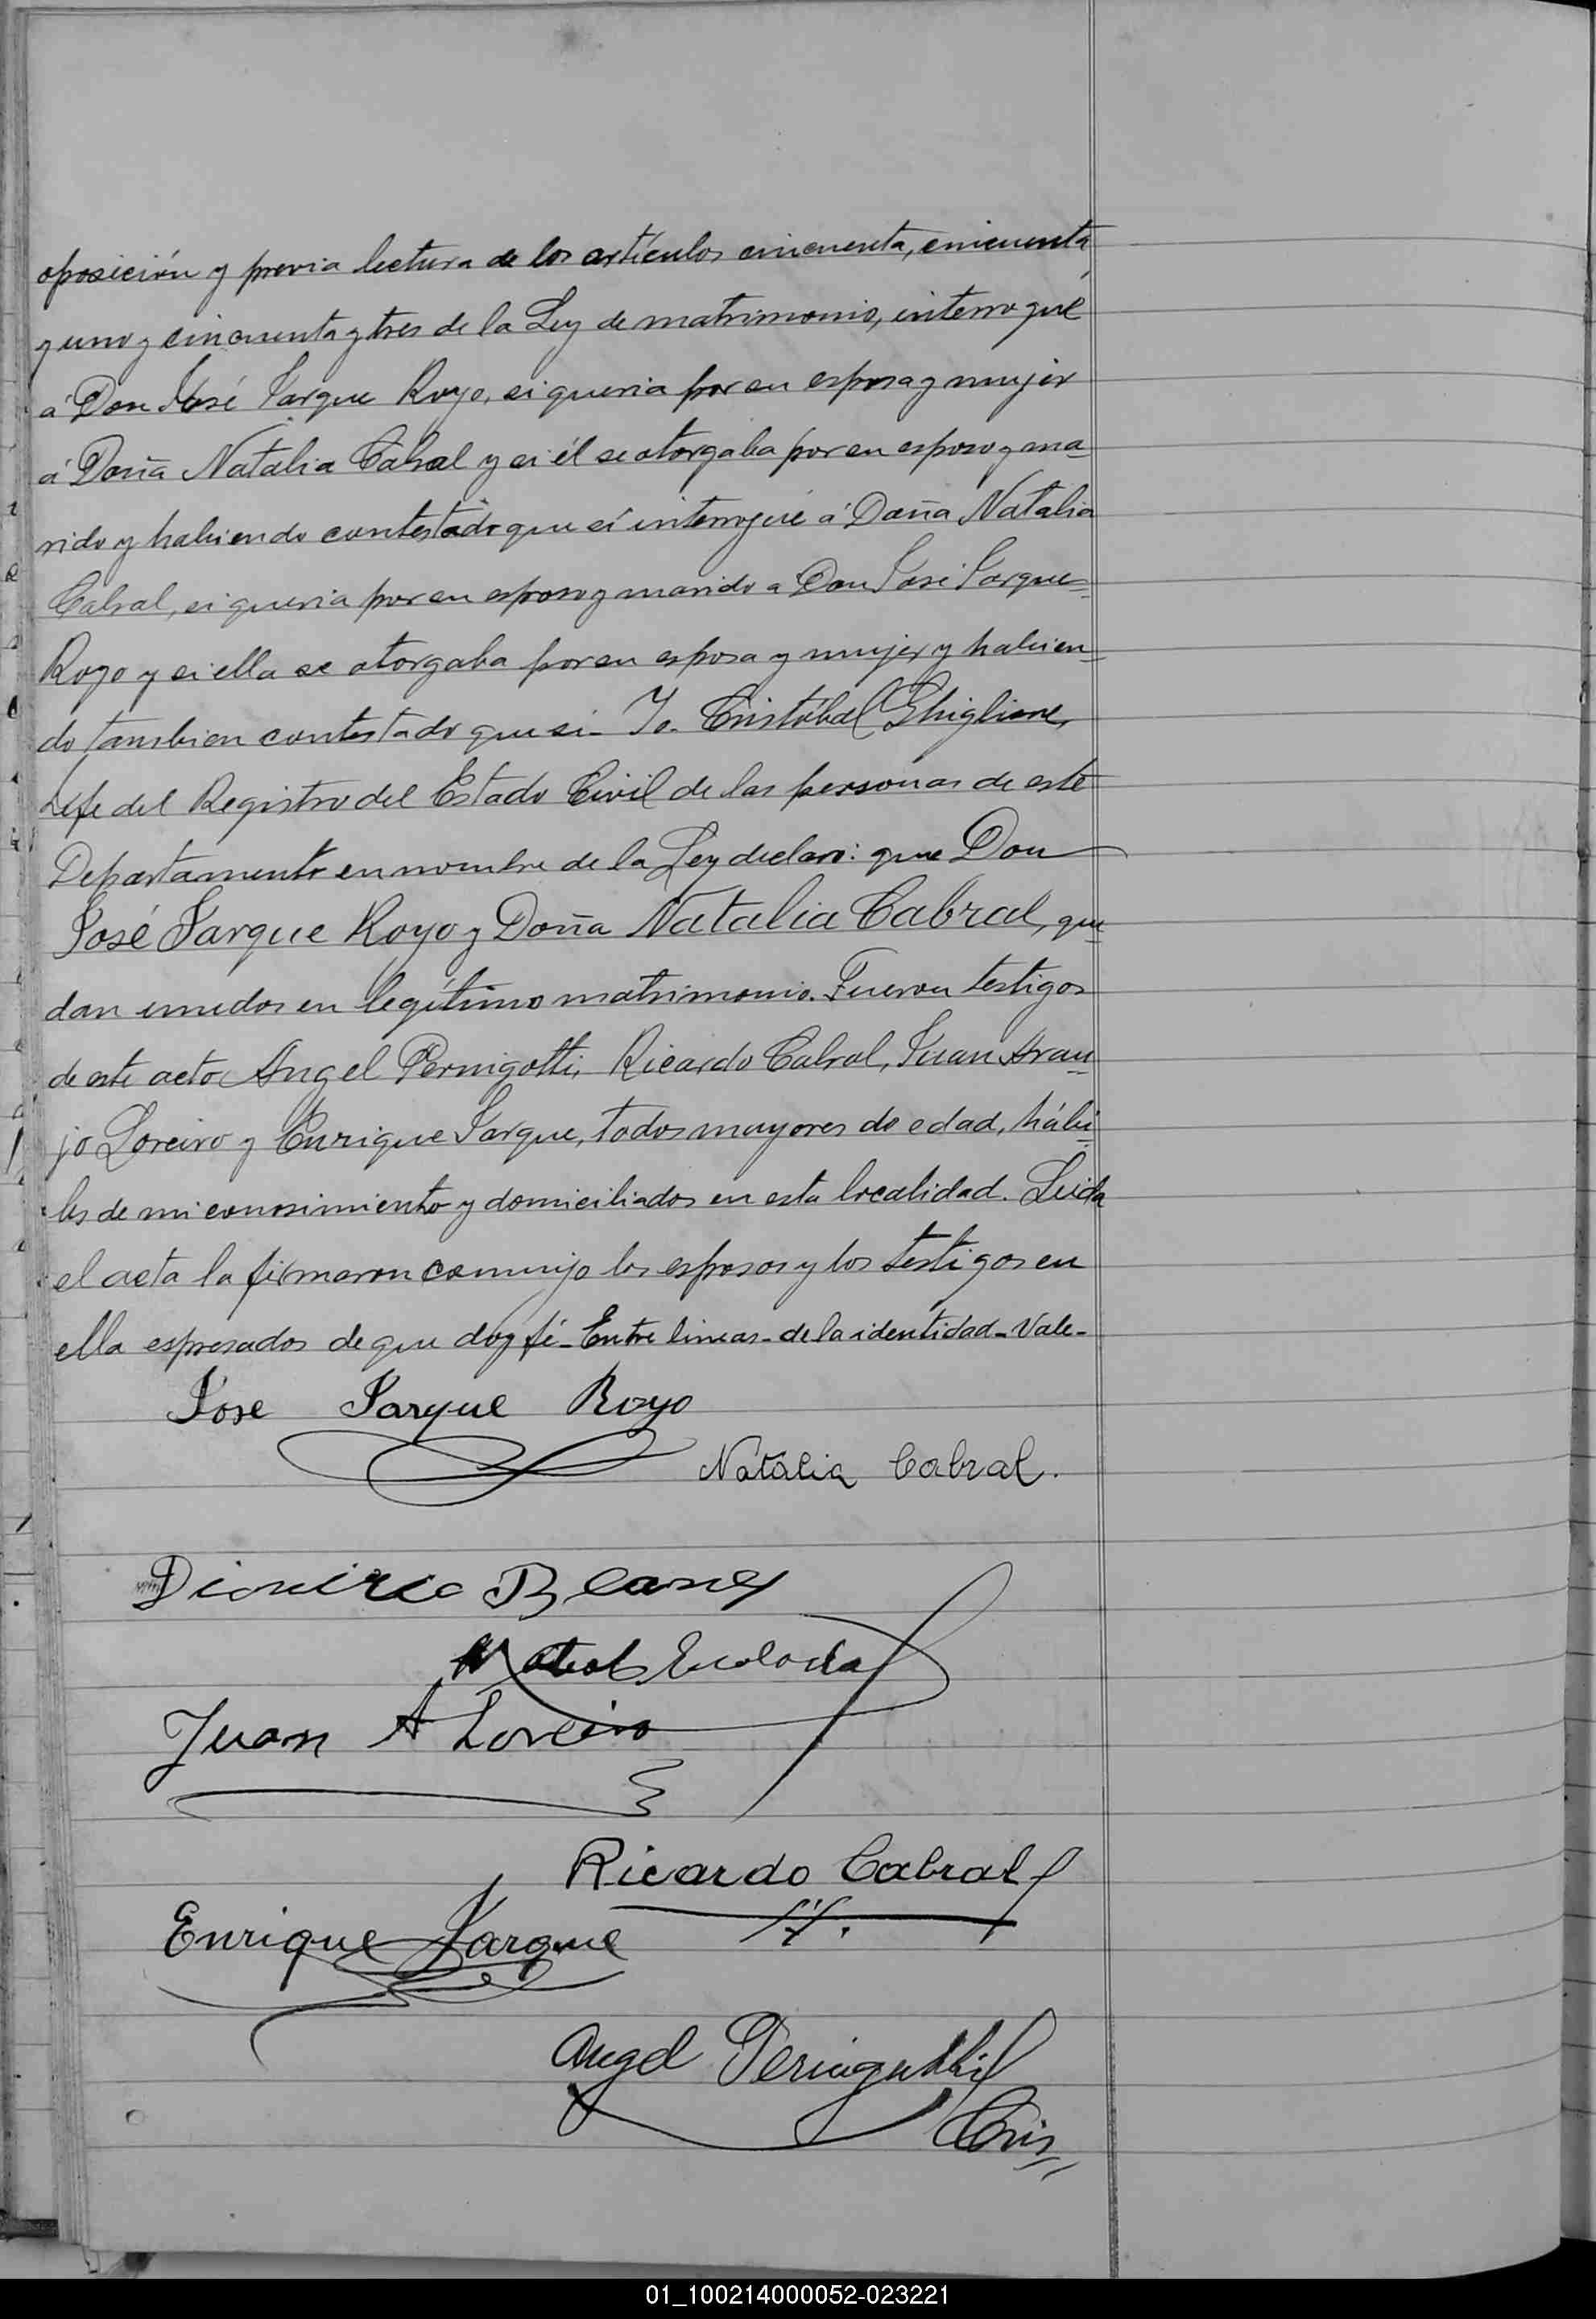 oposición y previa lectura de los artículos cincuenta, cincuenta
y uno y cincuenta y tres de la Ley de matrimonio, interrogué
á Don José Jarque Royo, si queria por su esposa y mujer
á Doña Natalia Cabral y si él se otorgaba por su esposo y ma-
rido y habiendo contestado que sí interrogué á Doña Natalia
Cabral, si queria por su esposo y marido a Don José Jarque
Royo y si ella se otorgaba por su esposa y mujer y habien-
do tambien contestado que si - Yo - Cristóbal Ghiglione,
Jefe del Registro del Estado Civil de las personas de este
Departamento en nombre de la Ley declaro: que Don
José Jarque Royo y Doña Natalia Cabral, que-
dan unidos en legítimo matrimonio. Fueron testigos
de este acto Angel Pernigotti, Ricardo Cabral, Juan Arau-
jo Loreiro y Enrique Jarque, todos mayores de edad, hábi-
les de mi conosimiento y domiciliados en esta localidad. Leida
el acta la firmaron conmigo los esposos y los testigos en
ella espresados de que doy fé - Entre lineas - de la identidad - Vale -
Jose Jarque Royo
Natalia Cabral.
Juan A Loreiro
Ricardo Cabral
Enrique Jarque
Angel Pernigotti
Cris
01_100214000052-023221